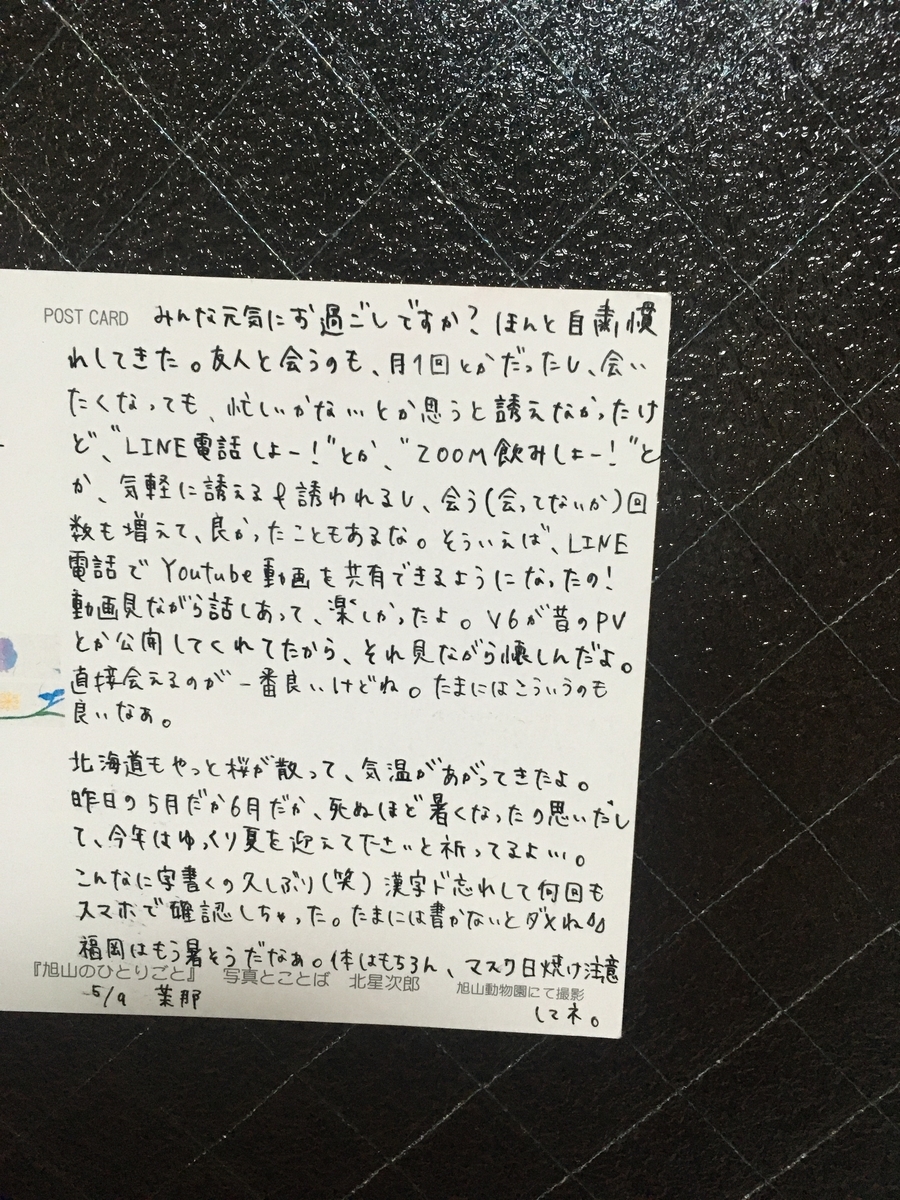 POST CARD みんな元気にお過ごしですか？ほんと自粛慣
れしてきた。友人と会うのも、月1回とかだったし、会い
たくなっても、忙しいかな…とか思うと誘えなかったけ
ど、“LINE電話しよー！”とか、“ZOOM飲みしよー！”と
か、気軽に誘える&誘われるし、会う(会ってないか)回
数も増えて、良かったこともあるな。そういえば、LINE
電話でYoutube動画を共有できるようになったの！
動画見ながら話しあって、楽しかったよ。V6が昔のPV
とか公開してくれてたから、それ見ながら懐しんだよ。
直接会えるのが一番良いけどね。たまにはこういうのも
良いなぁ。
北海道もやっと桜が散って、気温があがってきたよ。
昨日の5月だか6月だか、死ぬほど暑くなったの思いだし
て、今年はゆっくり夏を迎えて下さいと祈ってるよ…。
こんなに字書くの久しぶり(笑)漢字ド忘れして何回も
スマホで確認しちゃった。たまには書かないとダメね
福岡はもう暑そうだなぁ。体はもちろん、マスク日焼け注意
してネ。
『旭山のひとりごと』 写真とことば 北星次郎 旭山動物園にて撮影
5/9